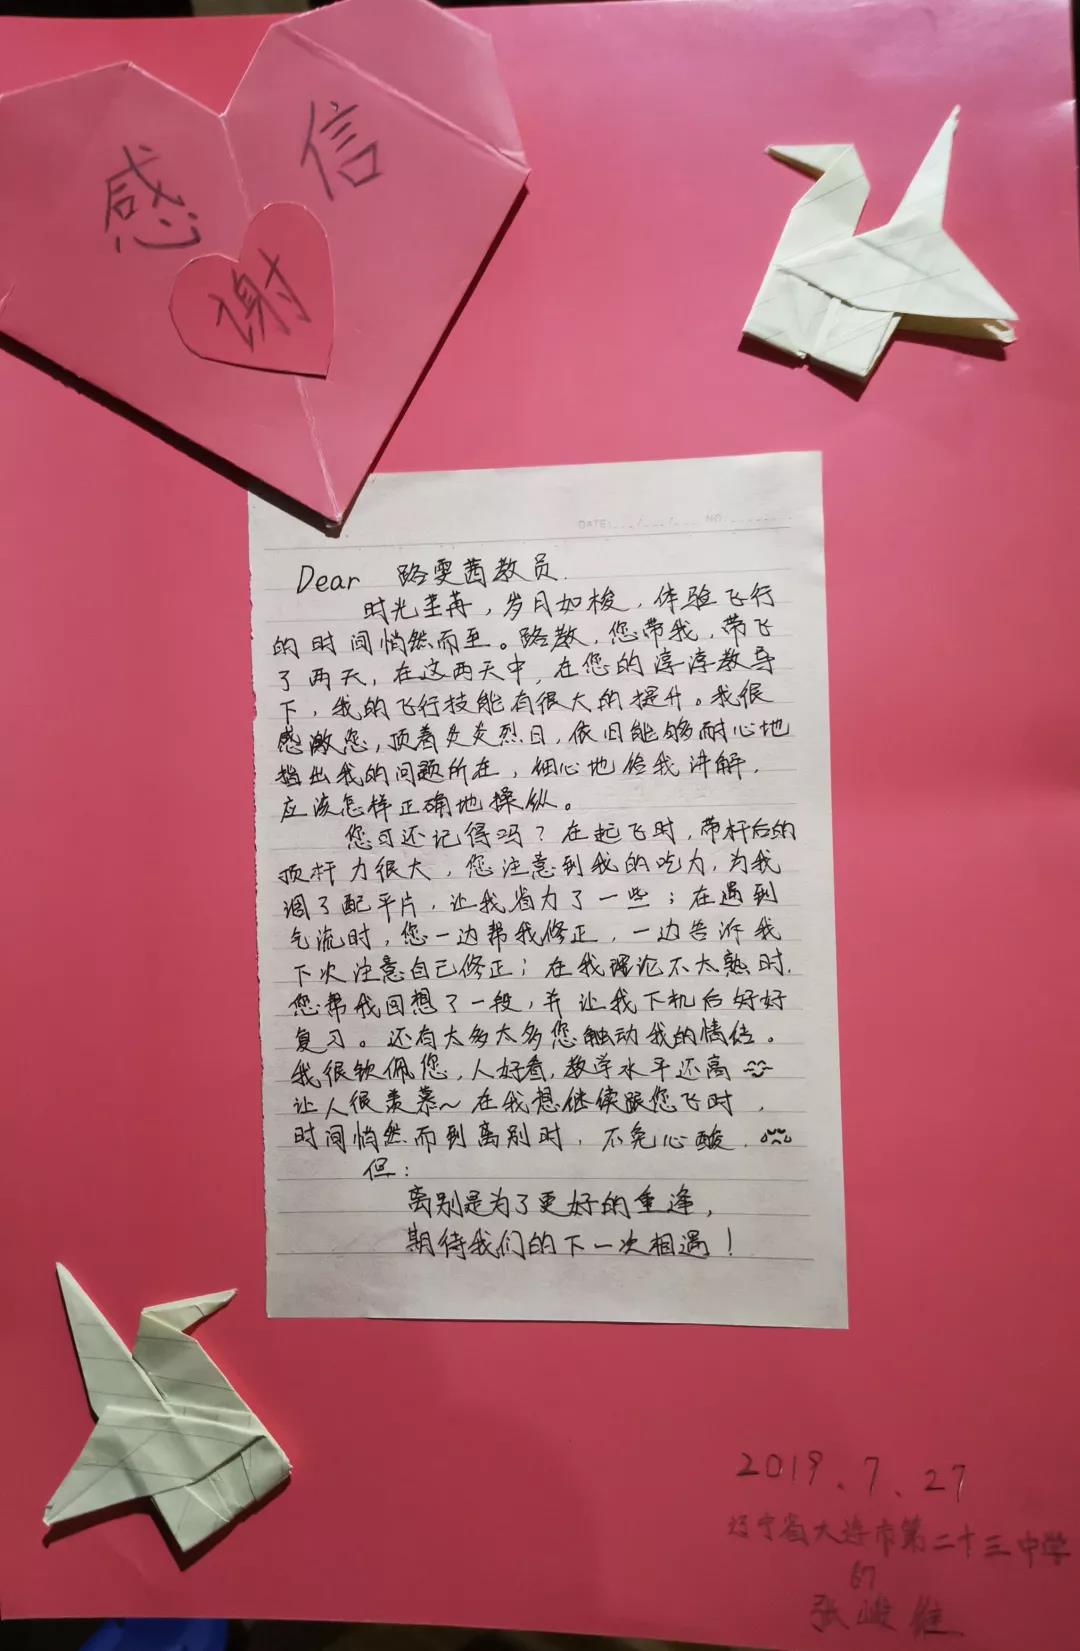 感 信
谢
DATE: / / NO.
Dear 路雯茜教员.
时光荏苒，岁月如梭，体验飞行
的时间悄然而至。路教，您带我，带飞
了两天，在这两天中，在您的淳淳教导
下，我的飞行技能有很大的提升。我很
感激您，顶着炎炎烈日，依旧能够耐心地
指出我的问题所在，细心地给我讲解，
应该怎样正确地操纵。
您可还记得吗？在起飞时，带杆后的
顶杆力很大，您注意到我的吃力，为我
调了配平片，让我省力了一些；在遇到
气流时，您一边帮我修正，一边告诉我
下次注意自己修正；在我理论不太熟时，
您帮我回想了一段，并让我下机后好好
复习。还有太多太多您触动我的情结。
我很钦佩您，人好看，教学水平还高
让人很羡慕～在我想继续跟您飞时，
时间悄然而到离别时，不免心酸.
但：
离别是为了更好的重逢，
期待我们的下一次相遇！
2019.7.27
辽宁省大连市第二十三中学
67
张峻